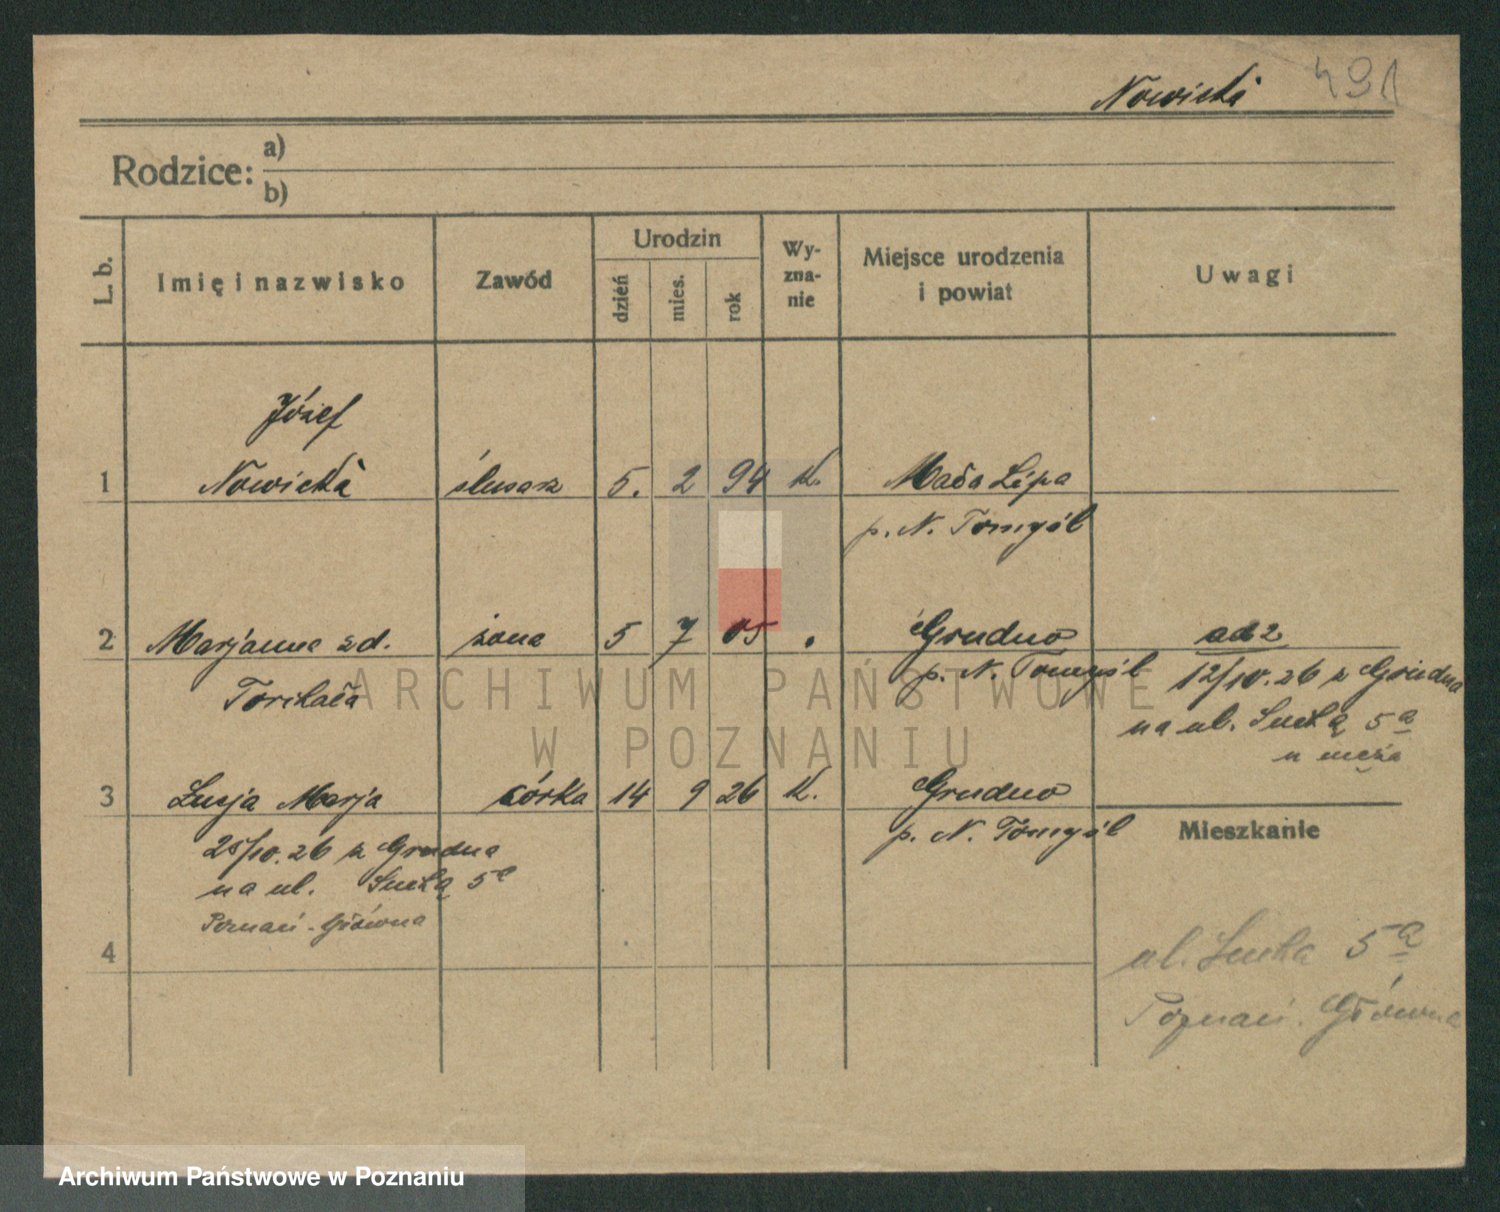 Nowicki 491
Rodzice: a)
b)
L. b. Imię i nazwisko Zawód Urodzin dzień mies. rok Wy-zna-nie Miejsce urodzenia i powiat Uwagi
Józef
1 Nowicki ślusarz 5. 2 94 K. Mała Lipa
p. N. Tomyśl
2 Marjanna zd. żona 5 7 05 Grudno ad 2
p. N. Tomyśl 12/10.26 z Grudna
na ul. Suchą 5a
u męża
3 Lucja Marja córka 14 9 26 K. Grudno
25/10.26 z Grudna p. N. Tomyśl Mieszkanie
na ul. Suchą 5a
Poznań-Główna
4 ul. Sucha 5a
Poznań. Główna
ARCHIWUM PAŃSTWOWE
W POZNANIU
Archiwum Państwowe w Poznaniu